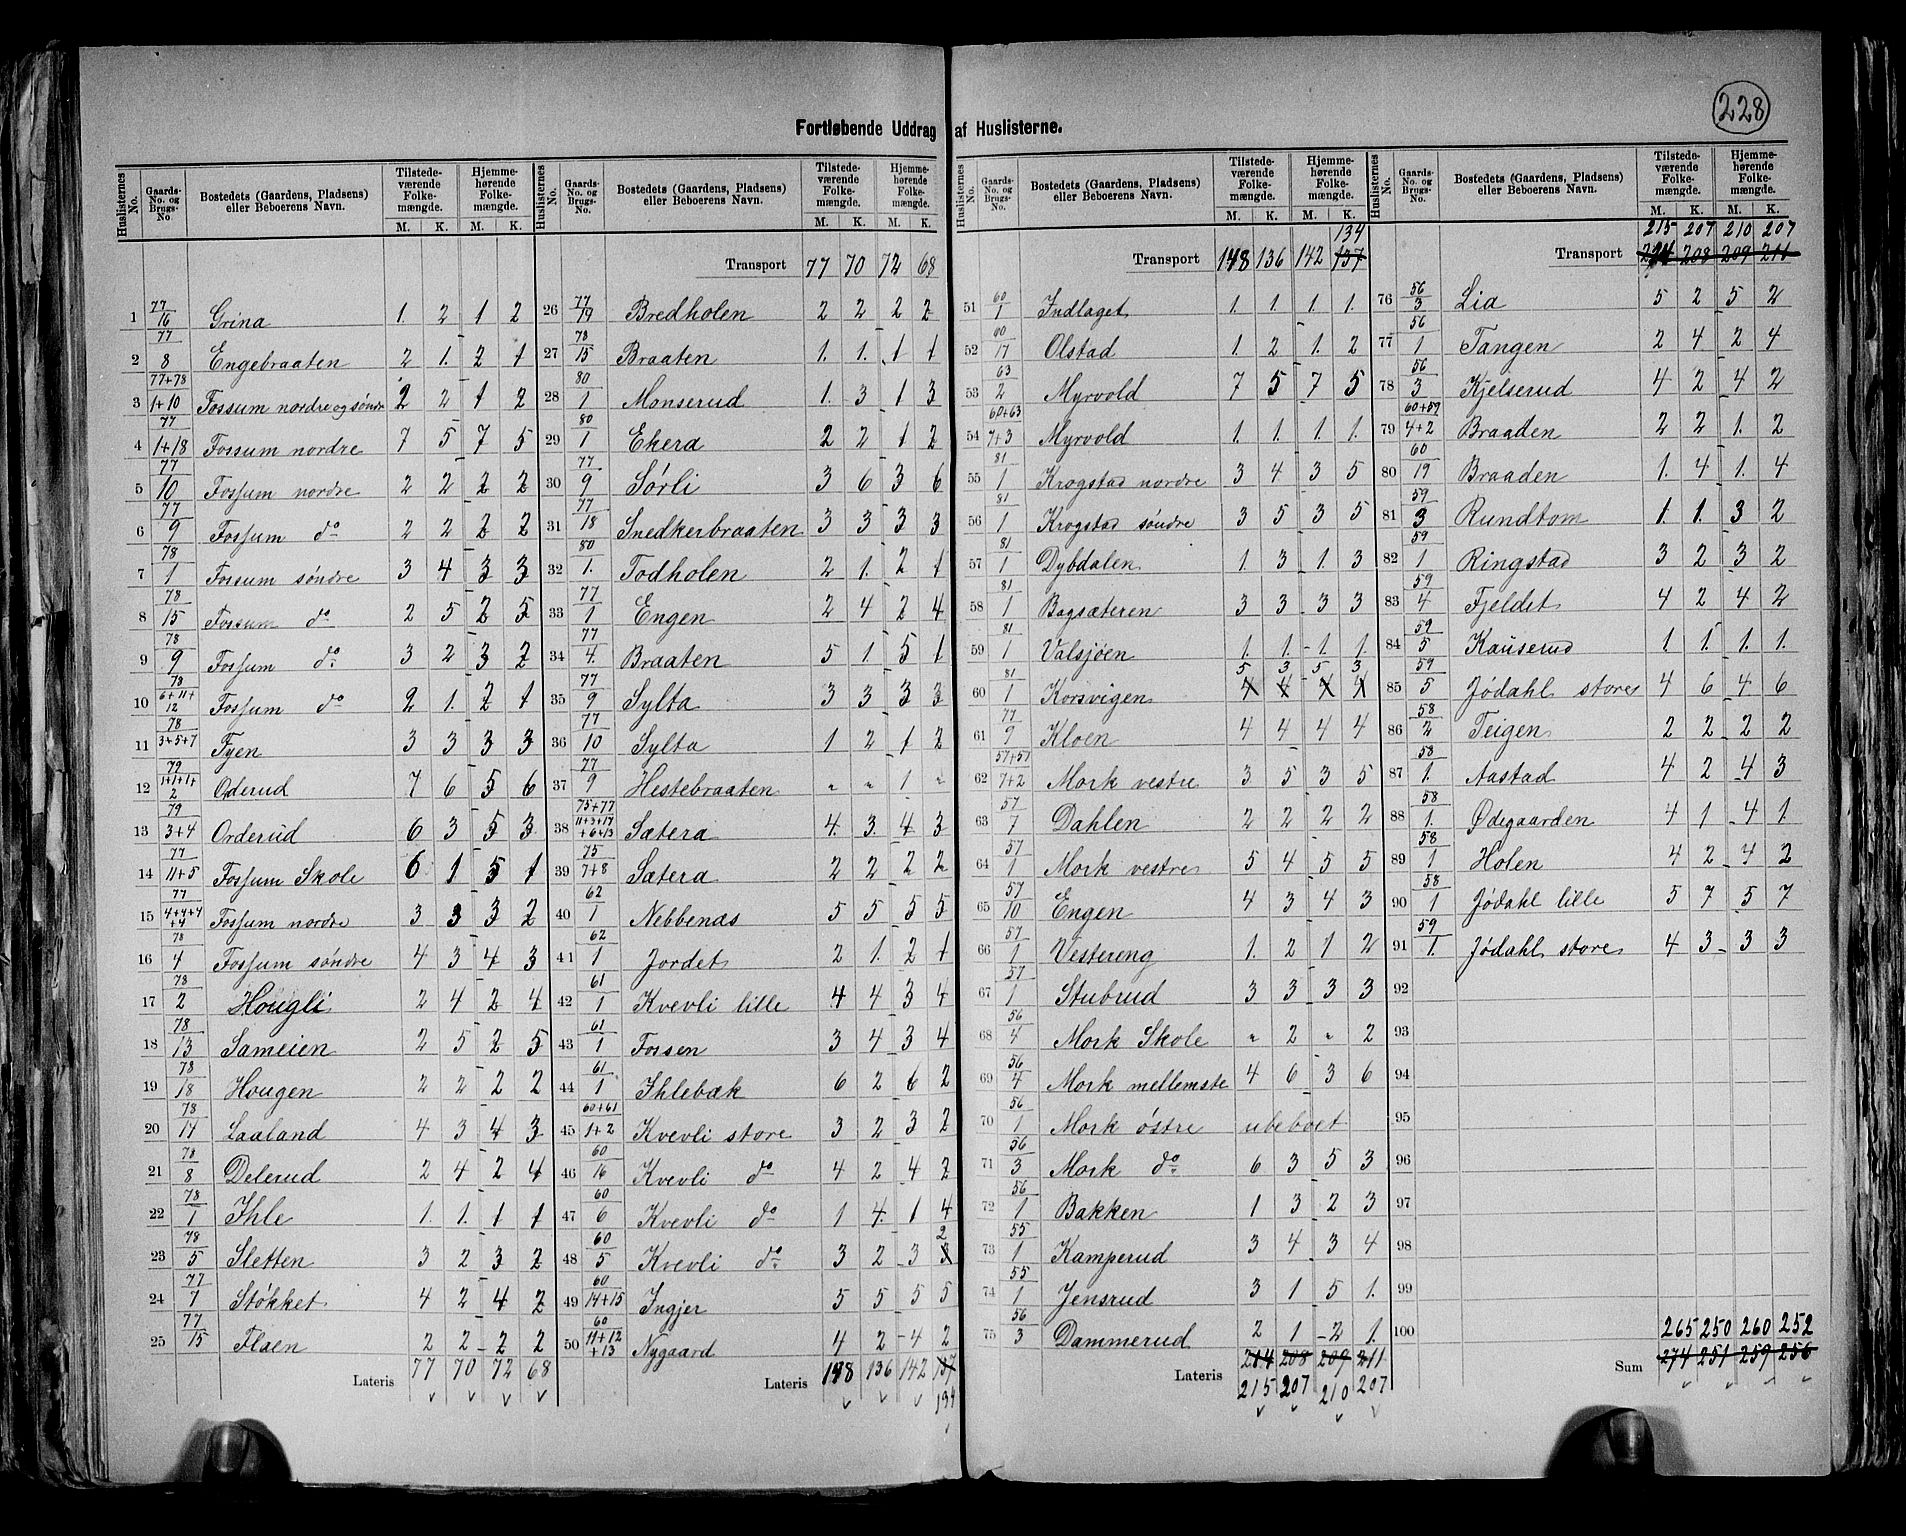 228
Fortløbende Uddrag af Huslisterne.
Huslisternes No. | Gaards-No. og Brugs-No. | Bostedets (Gaardens, Pladsens) eller Beboerens Navn. | Tilstedeværende Folkemængde. M. K. | Hjemmehørende Folkemængde. M. K.
1 77/16 Grina 1. 2 1 2
2 77/8 Engebraaten 2 1. 2 1
3 77+78/1+10 Fossum nordre og søndre 2 2 1 2
4 77/1+18 Fossum nordre 7 5 7 5
5 77/10 Fossum nordre 2 2 2 2
6 77/9 Fossum do 2 2 2 2
7 78/1 Fossum søndre 3 4 3 3
8 78/15 Fossum do 2 5 2 5
9 78/9 Fossum do 3 2 3 2
10 78/6+11+12 Fossum do 2 1. 2 1
11 78/3+5+7 Fyen 3 3 3 3
12 79/1+1+1+2 Oderud 7 6 5 6
13 79/3+4 Orderud 6 3 5 3
14 77/11+5 Fossum Skole 6 1 5 1
15 77/4+4+4+4 Fossum nordre 3 3 3 2
16 78/4 Fossum søndre 4 3 4 3
17 78/2 Hougli 2 4 2 4
18 78/13 Sameien 2 5 2 5
19 78/18 Hougen 2 2 2 2
20 78/14 Laaland 4 3 4 3
21 78/8 Delerud 2 4 2 4
22 78/1 Ihle 1. 1. 1 1
23 78/5 Sletten 3 2 3 2
24 77/7 Støkket 4 2 4 2
25 77/15 Flaen 2 2 2 2
Lateris 77 70 72 68
Huslisternes No. | Gaards-No. og Brugs-No. | Bostedets (Gaardens, Pladsens) eller Beboerens Navn. | Tilstedeværende Folkemængde. M. K. | Hjemmehørende Folkemængde. M. K.
Transport 77 70 72 68
26 77/19 Bredholen 2 2 2 2
27 78/15 Braaten 1. 1. 1 1
28 80/1 Monserud 1. 3 1 3
29 80/1 Ekera 2 2 1 2
30 77/9 Sørli 3 6 3 6
31 77/18 Snedkerbraaten 3 3 3 3
32 80/1. Todholen 2 1. 2 1
33 77/1 Engen 2 4 2 4
34 77/4. Braaten 5 1. 5 1
35 77/9 Sylta 3 3 3 3
36 77/10 Sylta 1 2 1 2
37 77/9 Hestebraaten " " 1 "
38 75+77/11+3+17+6+13 Sætera 4. 3. 4 3
39 75/7+8 Sætera 2 2 2 2
40 62/1 Nebbenæs 5 5 5 5
41 62/1 Jordet 2 1. 2 1
42 61/1 Kvevli lille 4 4 3 4
43 61/1 Fossen 3 4 3 4
44 61/1 Ihlebæk 6 2 6 2
45 60+61/1+2 Kvevli store 3 2 3 2
46 60/16 Kvevli do 4 2 4 2
47 60/6 Kvevli do 1 4. 1 4
48 60/5 Kvevli do 3 2 3 3 2
49 60/14+15 Ingjer 5 5 5 5
50 60/11+12+13 Nygaard 4 2 4 2
Lateris 148 136 142 137
134
Huslisternes No. | Gaards-No. og Brugs-No. | Bostedets (Gaardens, Pladsens) eller Beboerens Navn. | Tilstedeværende Folkemængde. M. K. | Hjemmehørende Folkemængde. M. K.
134
Transport 148 136 142 137
51 60/1 Indlaget 1. 1. 1. 1.
52 60/17 Olstad 1. 2 1. 2
53 63/2 Myrvold 7 5 7 5
54 60+63/7+3 Myrvold 1. 1. 1. 1.
55 81/1 Krogstad nordre 3 4 3 5
56 81/1 Krogstad søndre 3 5 3 5
57 81/1 Dybdalen 1. 3 1. 3
58 81/1 Bagsæteren 3 3 3 3
59 81/1 Valsjøen 1. 1. 1 1.
5 3 5 3
60 81/1 Korsvigen 4 4 4 4
61 77/9 Kloen 4 4 4 4
62 57+57/7+2 Mork vestre 3 5 3 5
63 57/7 Dahlen 2 2 2 2
64 57/1 Mork vestre 5 4 5 5
65 57/10 Engen 4 3 4 3
66 57/1 Vestereng 1. 2 1 2
67 57/1 Stubrud 3 3 3 3
68 56/4 Mork Skole " 2 " 2
69 56/4 Mork mellemste 4 6 3 6
70 56/1 Mork østre ubeboet
71 56/3 Mork do 6 3 5 3
72 56/1 Bakken 1 3 2 3
73 55/1 Kamperud 3 4 3 4
74 55/1 Jensrud 3 1 5 1.
75 56/3 Dammerud 2 1 2 1.
Lateris 214 208 209 211
215 207 210 207
Huslisternes No. | Gaards-No. og Brugs-No. | Bostedets (Gaardens, Pladsens) eller Beboerens Navn. | Tilstedeværende Folkemængde. M. K. | Hjemmehørende Folkemængde. M. K.
215 207 210 207
Transport 214 208 209 211
76 56/3 Lia 5 2 5 2
77 56/1 Tangen 2 4 2 4
78 56/3 Kjelserud 4 2 4 2
79 60+59/4+2 Braaden 2 2 1. 2
80 60/19 Braaden 1. 4 1. 4
81 59/3 Rundtom 1. 1. 3 2
82 59/1 Ringstad 3 2 3 2
83 59/4 Fjeldet 4 2 4 2
84 59/5 Kauserud 1. 1. 1. 1.
85 59/5 Jødahl store 4 6 4 6
86 58/2 Teigen 2 2 2 2
87 58/1. Aastad 4 2 4 3
88 58/1. Ødegaarden 4 1 4 1.
89 58/1 Holen 4 2 4 2
90 58/1 Jødahl lille 5 7 5 7
91 59/1. Jødahl store 4 3 3 3
92
93
94
95
96
97
98
99
100
265 250 260 252
Sum 274 251 259 256